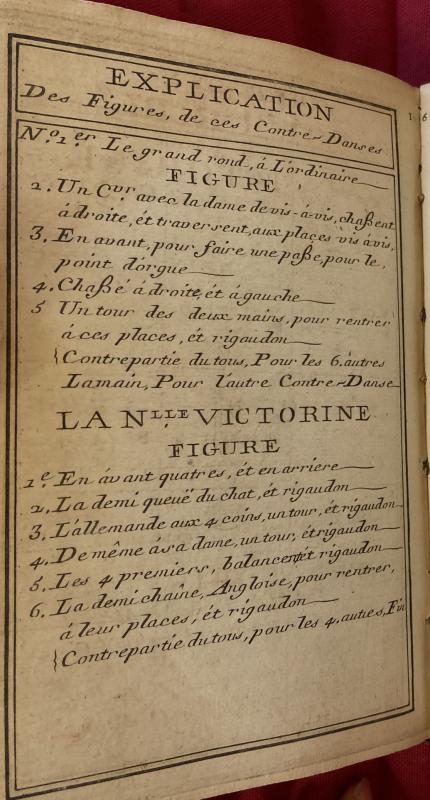 EXPLICATION
Des Figures, de ces Contre-Danses
N.º 1.er Le grand rond, á L'ordinaire
FIGURE
2. Un C.vr avec la dame de vis-á-vis, chaßent
ádroite, ét traversent, aux places vis ávis,
3. En avant, pour faire une paße, pour le,
point d'orgue
4. Chaßé ádroite, ét ágauche
5 Un tour des deux mains, pour rentrer
á ces places, ét rigaudon
{Contrepartie du tous, Pour les 6. autres
Lamain, Pour l'autre Contre-Danse
LA N.LLE VICTORINE
FIGURE
1.e En ávant quatres, ét en arriere
2. La demi queuë du chat, ét rigaudon
3. L'allemande aux 4 coins, un tour, ét rigaudon
4. De même ásra dame, un tour, ét rigaudon
5. Les 4 premiers, balancent, ét rigaudon
6. La demi chaîne, Angloise, pour rentrer,
á leur places, ét rigaudon
{Contrepartie du tous, pour les 4, auties, Fin
1 6